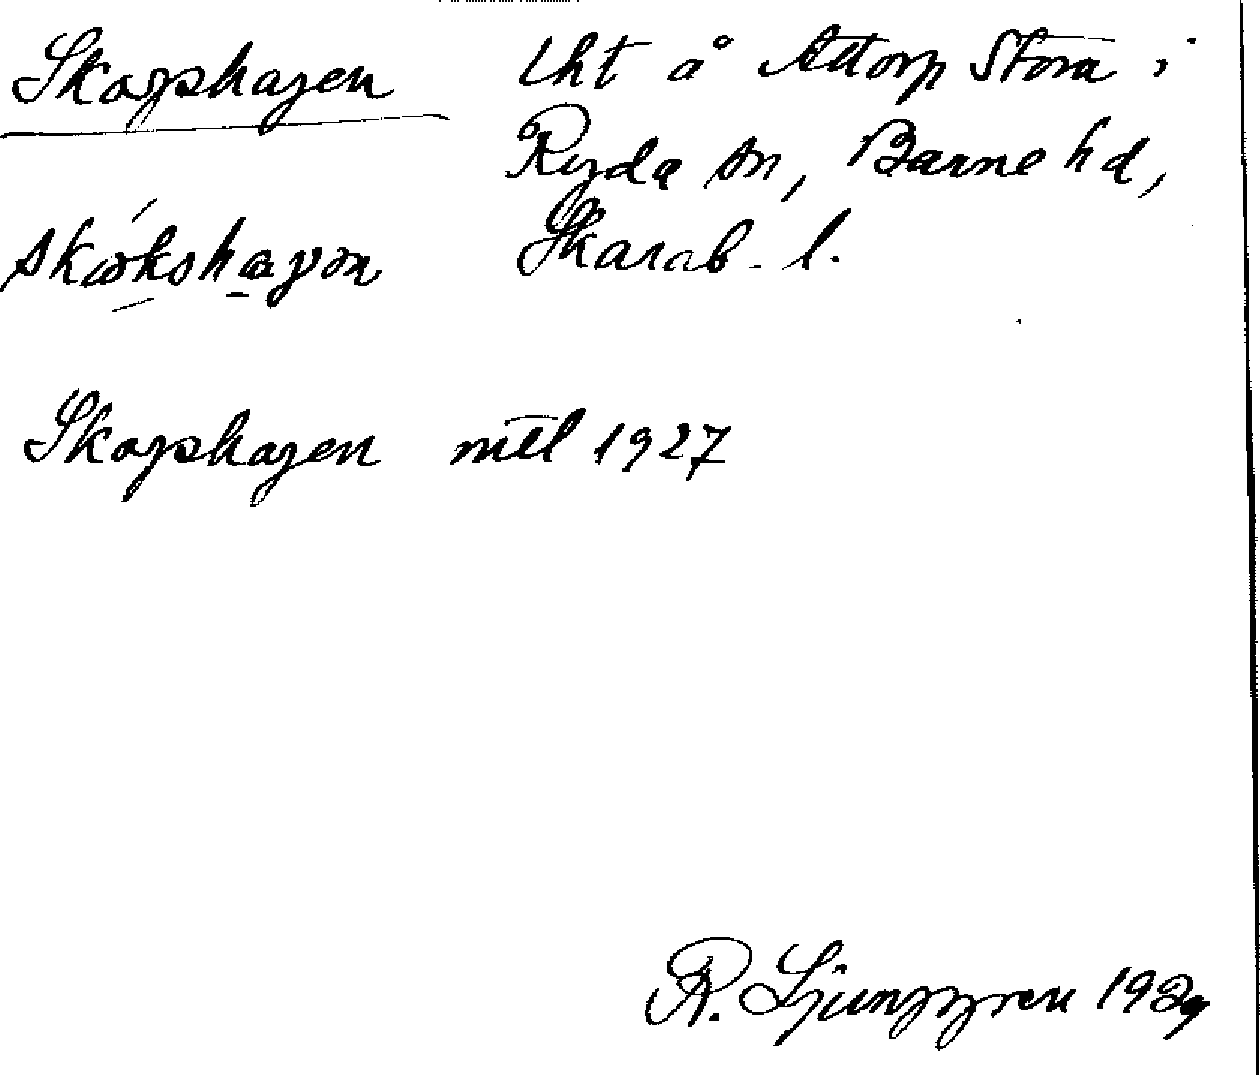 Skogshagen lht å Attorp Stora i
Ryda sn, Barne hd,
Skarab. l.
Skogshagen mtl 1927
R. Ljunggren 1929